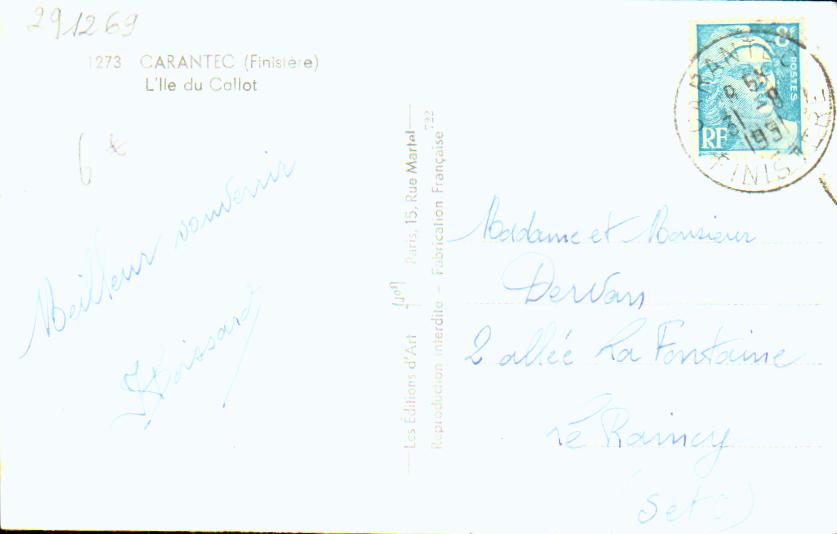 291269
1273 CARANTEC (Finistère)
L'Ile du Callot
6 *
Meilleur souvenir
Les Éditions d'Art "Jos" Paris, 15, Rue Martel
Reproduction interdite - Fabrication Française 722
8F
POSTES
RF
CARANTEC
31 -8
1951
FINISTERE
Maddame et Monsieur
Dervan
2 allée La Fontaine
Le Raincy
(S et O)